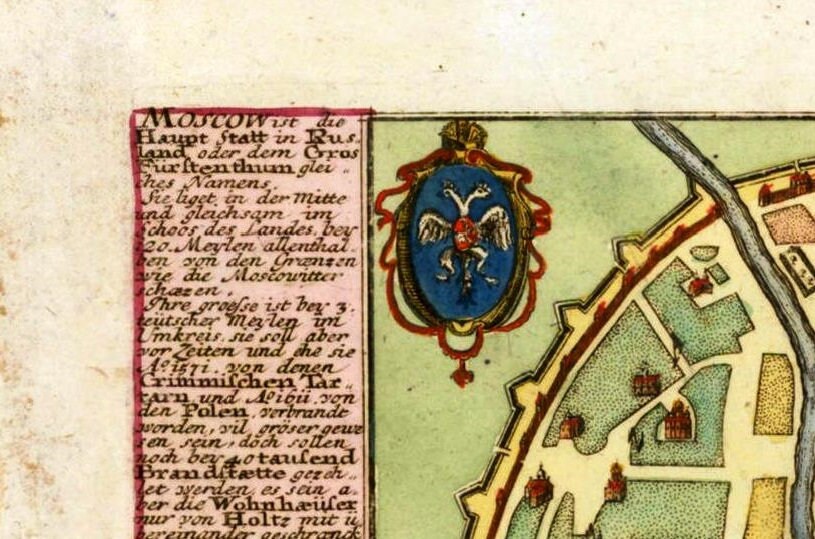 MOSCOW ist die
Haupt Statt in Rus-
land oder dem Gros
Fürstenthum glei-
ches Namens.
Sie liget in der mitte
und gleichsam im
schoos des Landes, bey
120. Meylen allenthal-
ben von den Grænzen
wie die Moscowitter
schæzen.
Ihre groesse ist bey 3.
teütscher Meylen im
Umkreis. sie soll aber
vor Zeiten und ehe sie
Aº 1571. von denen
Crimmischen Tar-
tarn und Aº 1611. von
den Polen, verbrandt
worden, vil gröser gewe
sen sein, doch sollen
noch bey 40 tausend
Brandstætte gezeh-
let werden, es sein a-
ber die Wohnhæüser
nur von Holtz mit ü
bereinander geschranck